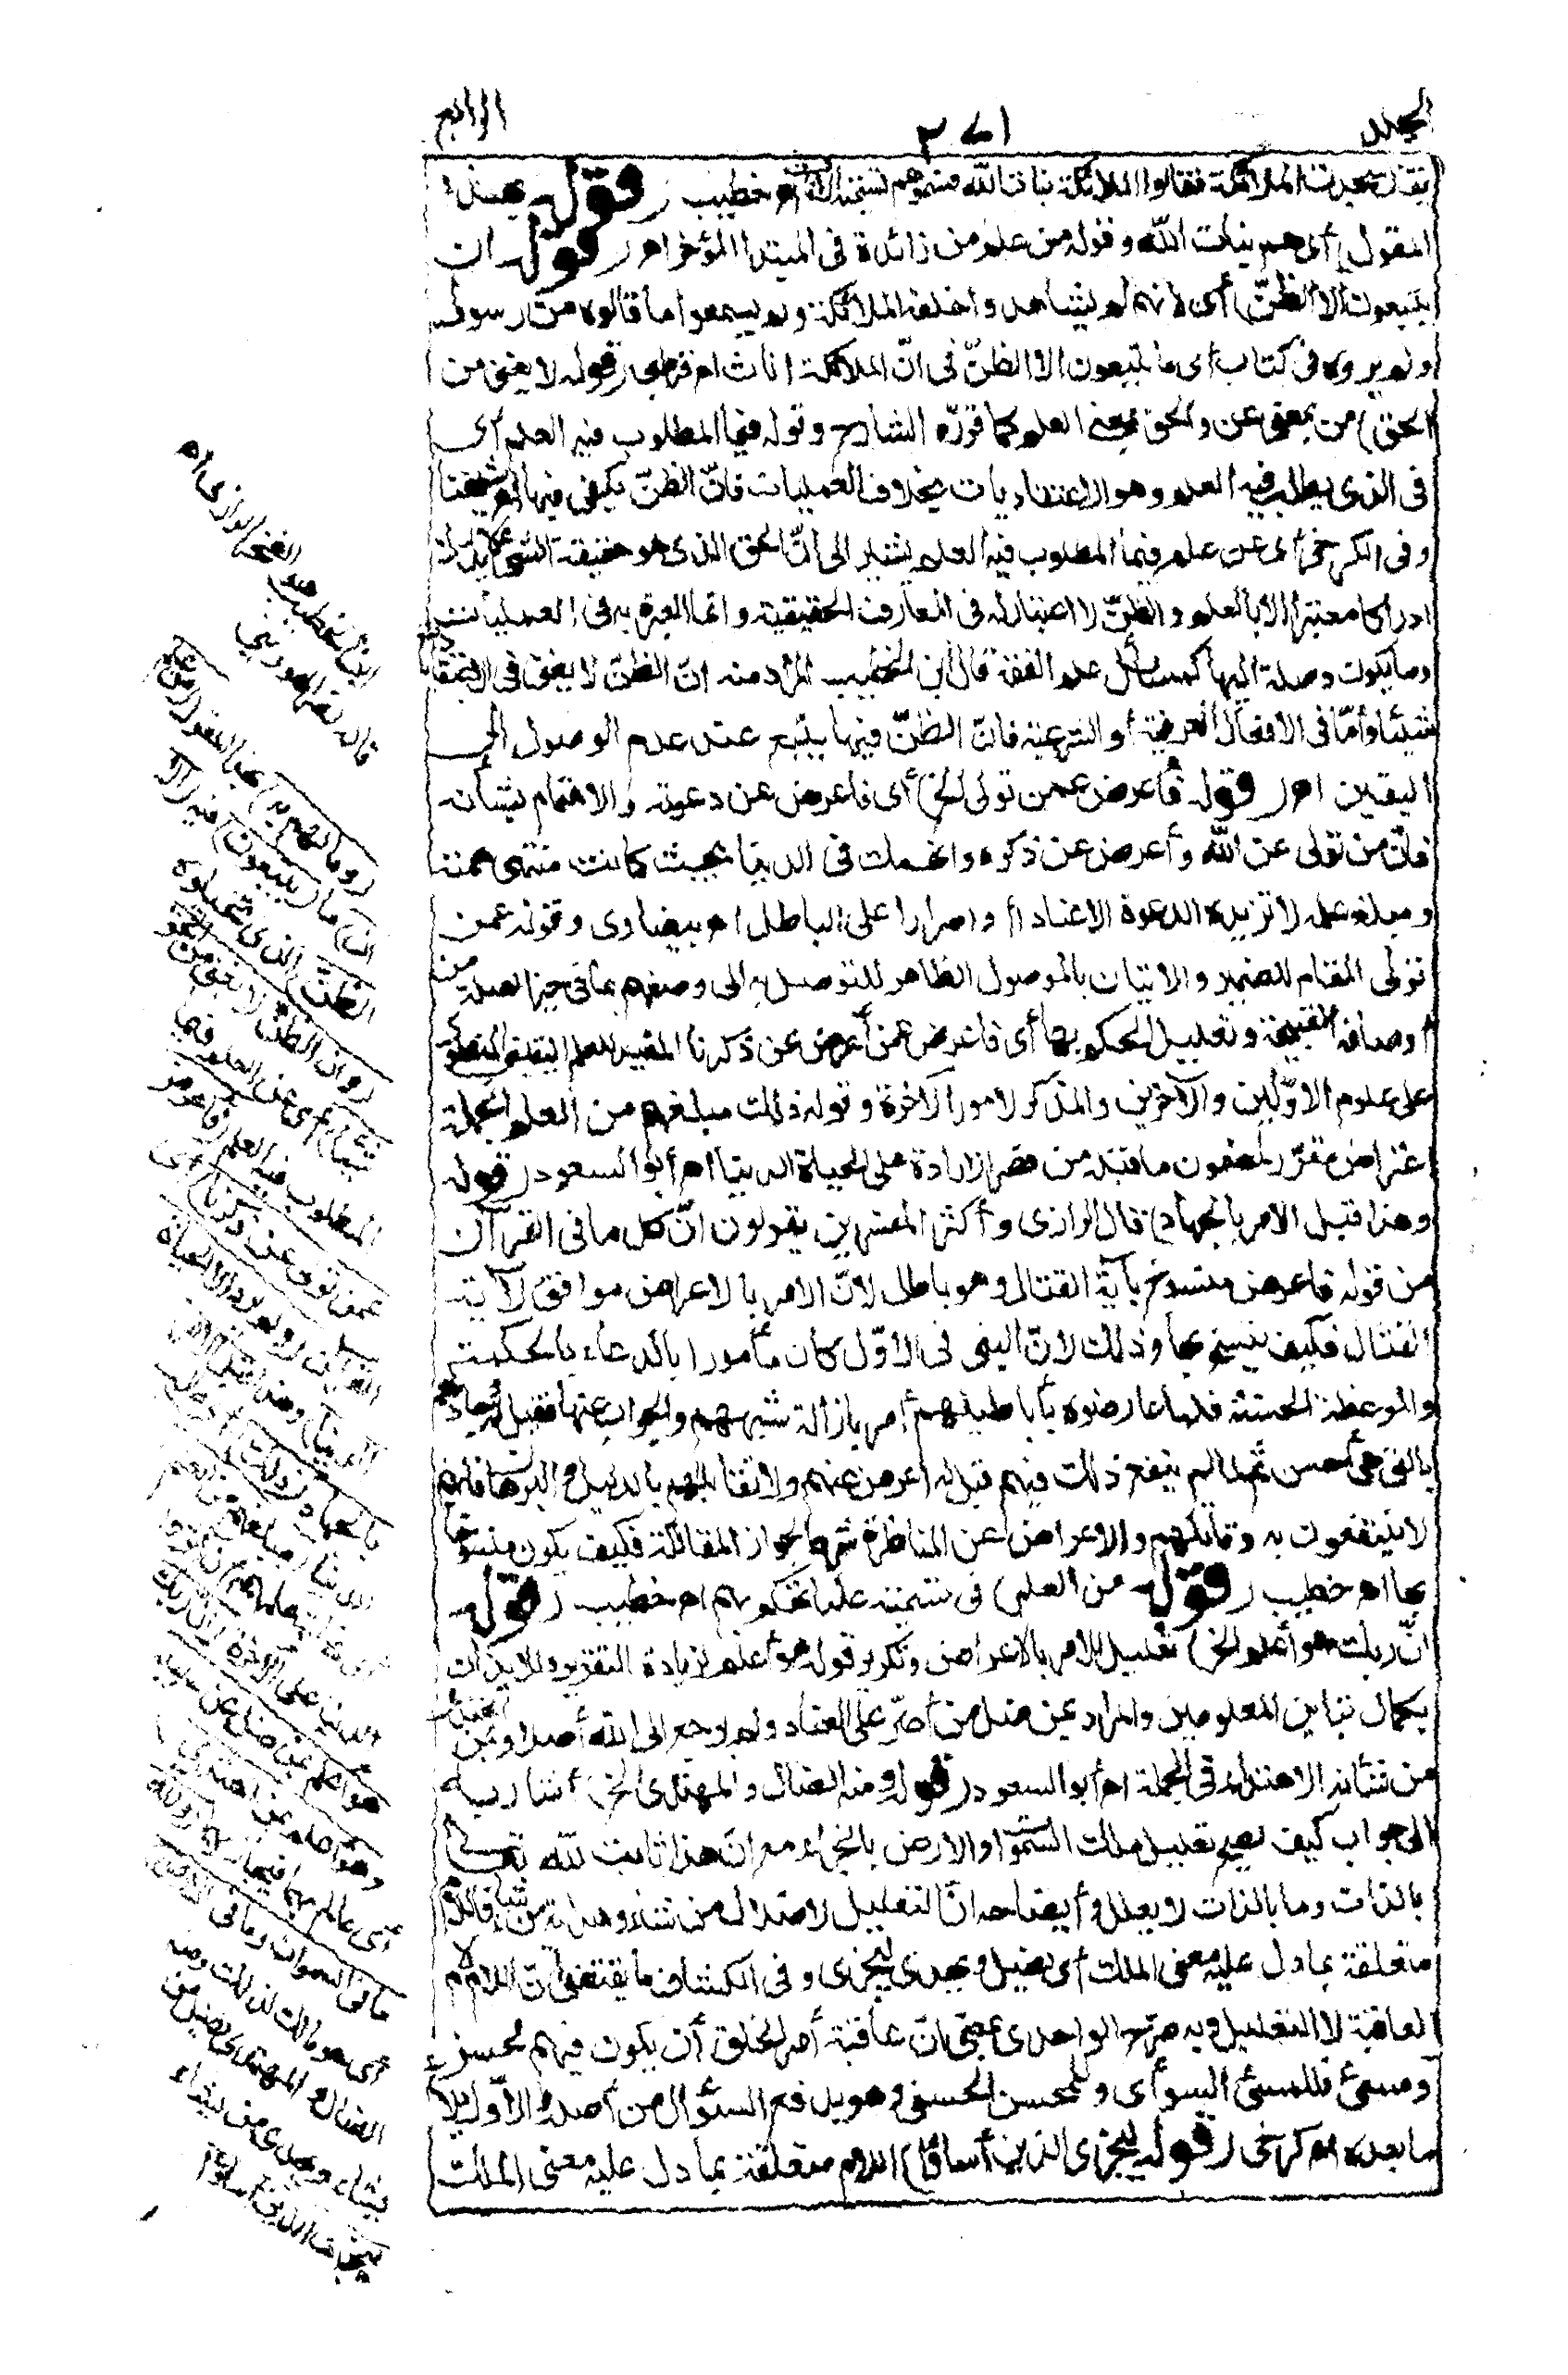 المجلد
٢٧١
الرابع
يقال سجدت الملائكة فقالوا الملائكة بنات الله فسموهم تسمية الاناث اه خطيب (قوله بهذا
المقول) أى هم بنات الله وقوله من علم من زائدة فى المبتدا المؤخر اه (قوله ان
يتبعون الا الظنّ) أى لانهم لم يشاهدوا خلقة الملائكة ولم يسمعوا ما قالوه من رسول
ولم يروه فى كتاب أى ما يتبعون الا الظنّ فى انّ الملائكة اناث اه قرطبى (قوله لا يغنى من
الحق) من بمعنى عن والحق بمعنى العلم كما قرّره الشارح وقوله فيما المطلوب فيه العلم أى
فى الذى يطلب فيه العلم وهو الاعتقاديات بخلاف العمليات فانّ الظنّ يكفى فيها اه شيخنا
وفى الكرخى أى عن علم فيما المطلوب فيه العلم يشير الى أنّ الحق الذى هو حقيقة الشئ لا يدرك
ادراكا معتبرا الا بالعلم والظنّ لا اعتبار له فى المعارف الحقيقية وانما العبرة به فى العمليات
وما يكون وصلة اليها كمسائل علم الفقه قال ابن الخطيب المراد منه انّ الظنّ لا يغنى فى الاعتقادات
شيئا وأمّا فى الافعال العرفية أو الشرعية فانّ الظنّ فيها يتبع عند عدم الوصول الى
اليقين اه (قوله فأعرض عمن تولى الخ) أى فاعرض عن دعوته والاهتمام بشأنه
فانّ من تولى عن الله وأعرض عن ذكره وانهمك فى الدنيا بحيث كانت منتهى همته
ومبلغ علمه لا تزيده الدعوة الا عنادا واصرارا على الباطل اه بيضاوى وقوله عمن
تولى المقام للضمير والاتيان بالموصول الظاهر للتوصل به الى وصفهم بما فى حيز الصلة من
أوصافه القبيحة وتعليل الحكم بها أى فاعرض عمن أعرض عن ذكرنا المفيد للعلم اليقينى المنطوى
على علوم الاوّلين والآخرين والمذكر لامور الآخرة وقوله ذلك مبلغهم من العلم الجملة
اعتراض مقرّر لمضمون ما قبله من قصر الارادة على الحياة الدنيا اه أبو السعود (قوله
وهذا قبل الامر بالجهاد) قال الرازى وأكثر المفسرين يقولون انّ كل ما فى القرآن
من قوله فاعرض منسوخ بآية القتال وهو باطل لانّ الامر بالاعراض موافق لآية
القتال فكيف ينسخ بها وذلك لانّ النبى فى الاوّل كان مأمورا بالدعاء بالحكمة
والموعظة الحسنة فلما عارضوه بأباطيلهم أمر بازالة شبههم والجواب عنها فقيل له وجادلهم
بالتى هى أحسن ثم لما لم ينفع ذلك فيهم قيل له اعرض عنهم ولا تقابلهم بالدليل والبرهان فانهم
لا ينتفعون به وقاتلهم والاعراض عن المناظرة شرط لجواز المقاتلة فكيف يكون منسوخا
بها اه خطيب (قوله من العلم) فى تسميته علما تهكم بهم اه خطيب (قوله
انّ ربك هو أعلم الخ) تعليل للامر بالاعراض وتكرير قوله هو أعلم لزيادة التقرير وللايذان
بكمال تباين المعلومين والمراد بمن ضل من أصرّ على العناد ولم يرجع الى الله أصلا وبمن اهتدى
من شأنه الاهتداء فى الجملة اه أبو السعود (قوله ومنه الضال والمهتدى الخ) أشار به
الى جواب كيف يصح تعليل ملك السموات والارض بالجزاء مع انّ هذا ثابت لله تعالى
بالذات وما بالذات لا يعلل وأيضاحه انّ التعليل لاضلال من شاء وهداية من شاء فاللام
متعلقة بما دل عليه معنى الملك أى يضل ويهدى ليجزى وفى الكشاف ما يقتضى أنّ اللام لام
العاقبة لا التعليل وبه صرّح الواحدى بمعنى انّ عاقبة أمر الخلق أن يكون فيهم محسن
ومسئ فللمسئ السوأى وللمحسن الحسنى وهو يدفع السؤال من أصله والاوّل يلائم
ما بعده اه كرخى (قوله ليجزى الذين أساؤا) اللام متعلقة بما دل عليه معنى الملك
قاله نصر الهورينى
(وما لهم به) بهذا المقول (من علم
ان) ما (يتبعون) فيه (الا
الظنّ) الذى تخيلوه
(وان الظنّ لا يغنى من الحق
شيئا) أى عن العلم فيما
المطلوب فيه العلم (فأعرض
عمن تولى عن ذكرنا) أى
القرآن (ولم يرد الا الحياة
الدنيا) وهذا قبل الامر
بالجهاد (ذلك) أى طلب
الدنيا (مبلغهم من العلم)
(ان ربك
هو أعلم بمن ضل عن سبيله
وهو أعلم بمن اهتدى)
أى عالم بهما فيجازيهما (ولله
ما فى السموات وما فى الارض)
أى هو مالك لذلك ومنه
الضال والمهتدى يضل من
يشاء ويهدى من يشاء
(ليجزى الذين أساؤا